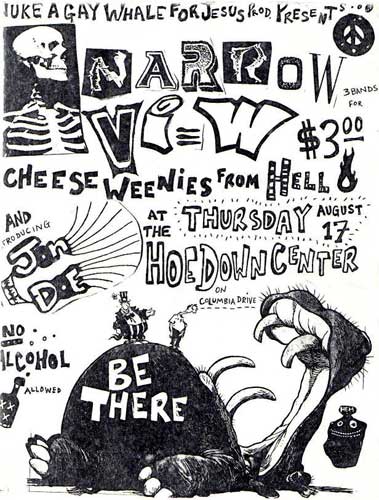 NUKE A GAY WHALE FOR JESUS PROD. PRESENTS...
NARROW
VIEW
3 BANDS
FOR
$3.00
CHEESE WEENIES FROM HELL
AND
RODUCING
Jon
DOE
AT THE
THURSDAY AUGUST 17
HOEDOWN CENTER
ON
COLUMBIA DRIVE
NO...
ALCOHOL
ALLOWED
BE
THERE
HEH